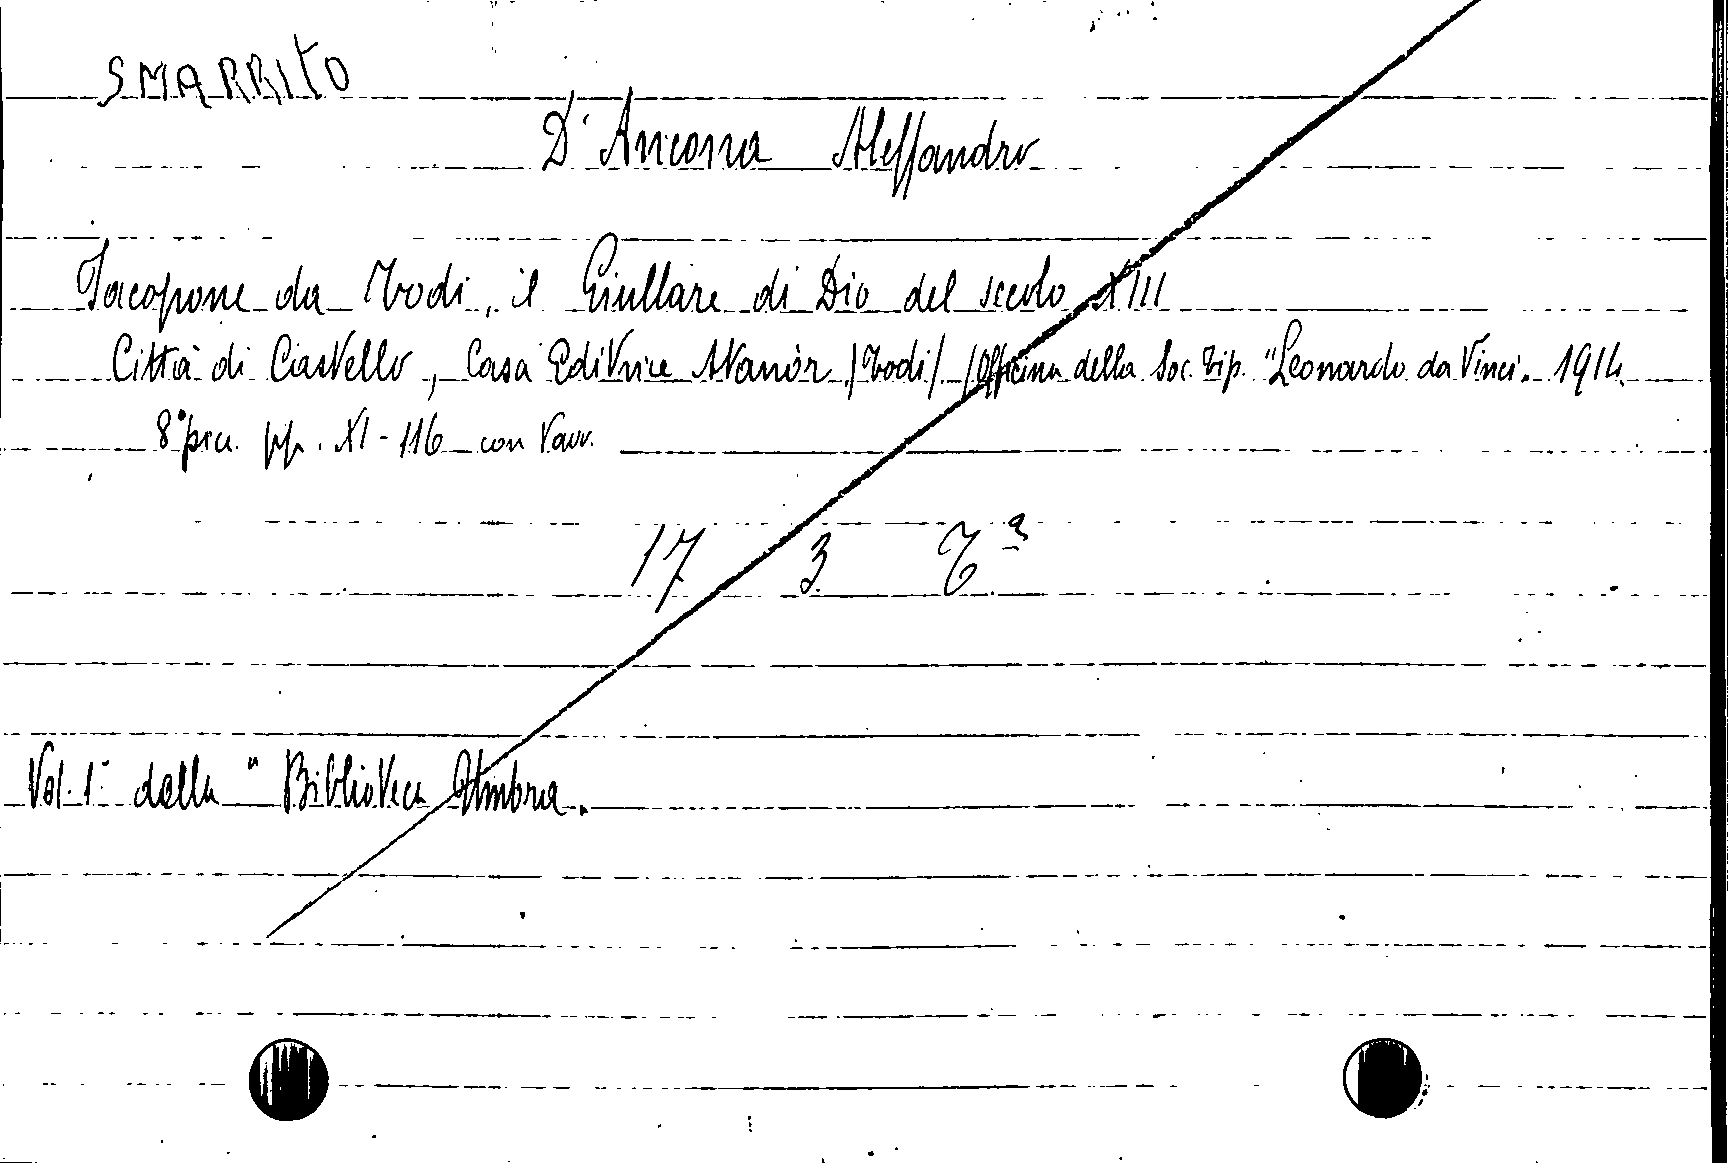 SMARRITO
D'Ancona Alessandro
Jacopone da Todi, il Giullare di Dio del secolo XIII
Città di Castello, Casa Editrice Atanòr /Todi/ /Officina della Soc. Tip. "Leonardo da Vinci. 1914.
8° picc. pp. XI-116 con tavv.
17 3 T a
Vol. 1° della "Biblioteca Umbra.